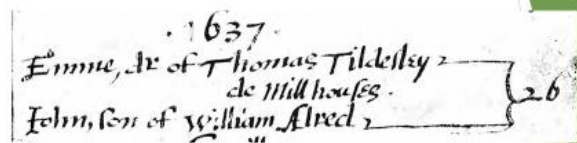 1637.
Emme, dr of Thomas Tildesley
de Millhouses.
John, son of William Alred
26